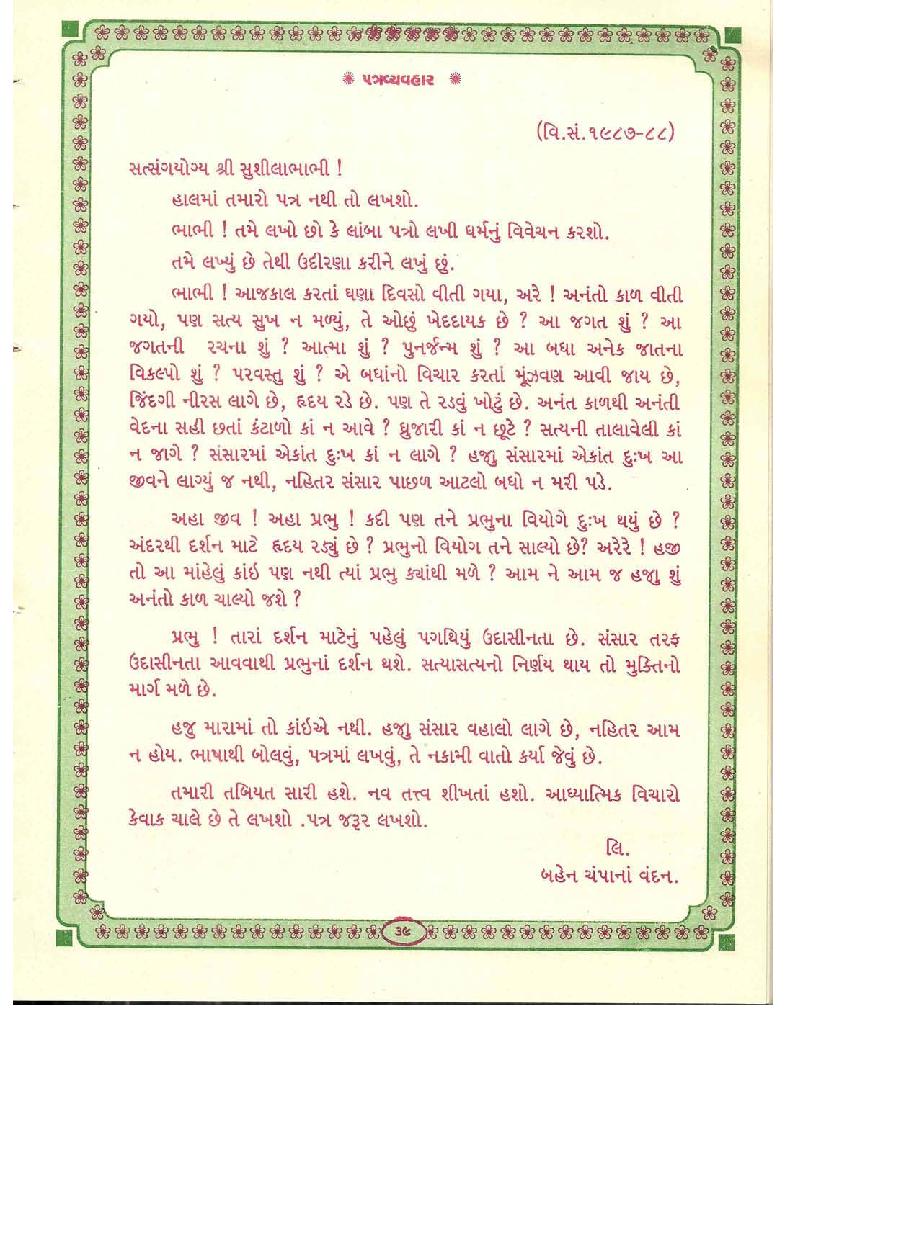 પત્રવ્યવહાર
(વિ.સં.૧૯૮૭-૮૮)
સત્સંગયોગ્ય શ્રી સુશીલાભાભી !
હાલમાં તમારો પત્ર નથી તો લખશો.
ભાભી ! તમે લખો છો કે લાંબા પત્રો લખી ધર્મનું વિવેચન કરશો.
તમે લખ્યું છે તેથી ઉદીરણા કરીને લખું છું.
ભાભી ! આજકાલ કરતાં ઘણા દિવસો વીતી ગયા, અરે ! અનંતો કાળ વીતી
ગયો, પણ સત્ય સુખ ન મળ્યું, તે ઓછું ખેદદાયક છે ? આ જગત શું ? આ
જગતની રચના શું ? આત્મા શું ? પુનર્જન્મ શું ? આ બધા અનેક જાતના
વિકલ્પો શું ? પરવસ્તુ શું ? એ બધાંનો વિચાર કરતાં મૂંઝવણ આવી જાય છે,
જિંદગી નીરસ લાગે છે, હૃદય રડે છે. પણ તે રડવું ખોટું છે. અનંત કાળથી અનંતી
વેદના સહી છતાં કંટાળો કાં ન આવે ? ધ્રુજારી કાં ન છૂટે ? સત્યની તાલાવેલી કાં
ન જાગે ? સંસારમાં એકાંત દુઃખ કાં ન લાગે ? હજુ સંસારમાં એકાંત દુઃખ આ
જીવને લાગ્યું જ નથી, નહિતર સંસાર પાછળ આટલો બધો ન મરી પડે.
અહા જીવ ! અહા પ્રભુ ! કદી પણ તને પ્રભુના વિયોગે દુઃખ થયું છે ?
અંદરથી દર્શન માટે હૃદય રડ્યું છે ? પ્રભુનો વિયોગ તને સાલ્યો છે? અરેરે ! હજી
તો આ માંહેલું કાંઇ પણ નથી ત્યાં પ્રભુ ક્યાંથી મળે ? આમ ને આમ જ હજુ શું
અનંતો કાળ ચાલ્યો જશે ?
પ્રભુ ! તારાં દર્શન માટેનું પહેલું પગથિયું ઉદાસીનતા છે. સંસાર તરફ
ઉદાસીનતા આવવાથી પ્રભુનાં દર્શન થશે. સત્યાસત્યનો નિર્ણય થાય તો મુક્તિનો
માર્ગ મળે છે.
હજુ મારામાં તો કાંઇએ નથી. હજુ સંસાર વહાલો લાગે છે, નહિતર આમ
ન હોય. ભાષાથી બોલવું, પત્રમાં લખવું, તે નકામી વાતો કર્યા જેવું છે.
તમારી તબિયત સારી હશે. નવ તત્ત્વ શીખતાં હશો. આધ્યાત્મિક વિચારો
કેવાક ચાલે છે તે લખશો .પત્ર જરૂર લખશો.
લિ.
બહેન ચંપાનાં વંદન.
૩૯